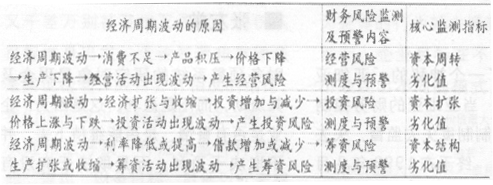 经济周期波动的原因 财务风险监测及预警内容 核心监测指标
经济周期波动→消费不足→产品积压→价格下降 经营风险 资本周转
→生产下降→经营活动出现波动→产生经营风险 测度与预警 劣化值
经济周期波动→经济扩张与收缩→投资增加与减少→ 投资风险 资本扩张
价格上涨与下跌→投资活动出现波动→产生投资风险 测度与预警 劣化值
经济周期波动→利率降低或提高→借款增加或减少→ 筹资风险 资本结构
生产扩张或收缩→筹资活动出现波动→产生筹资风险 测度与预警 劣化值